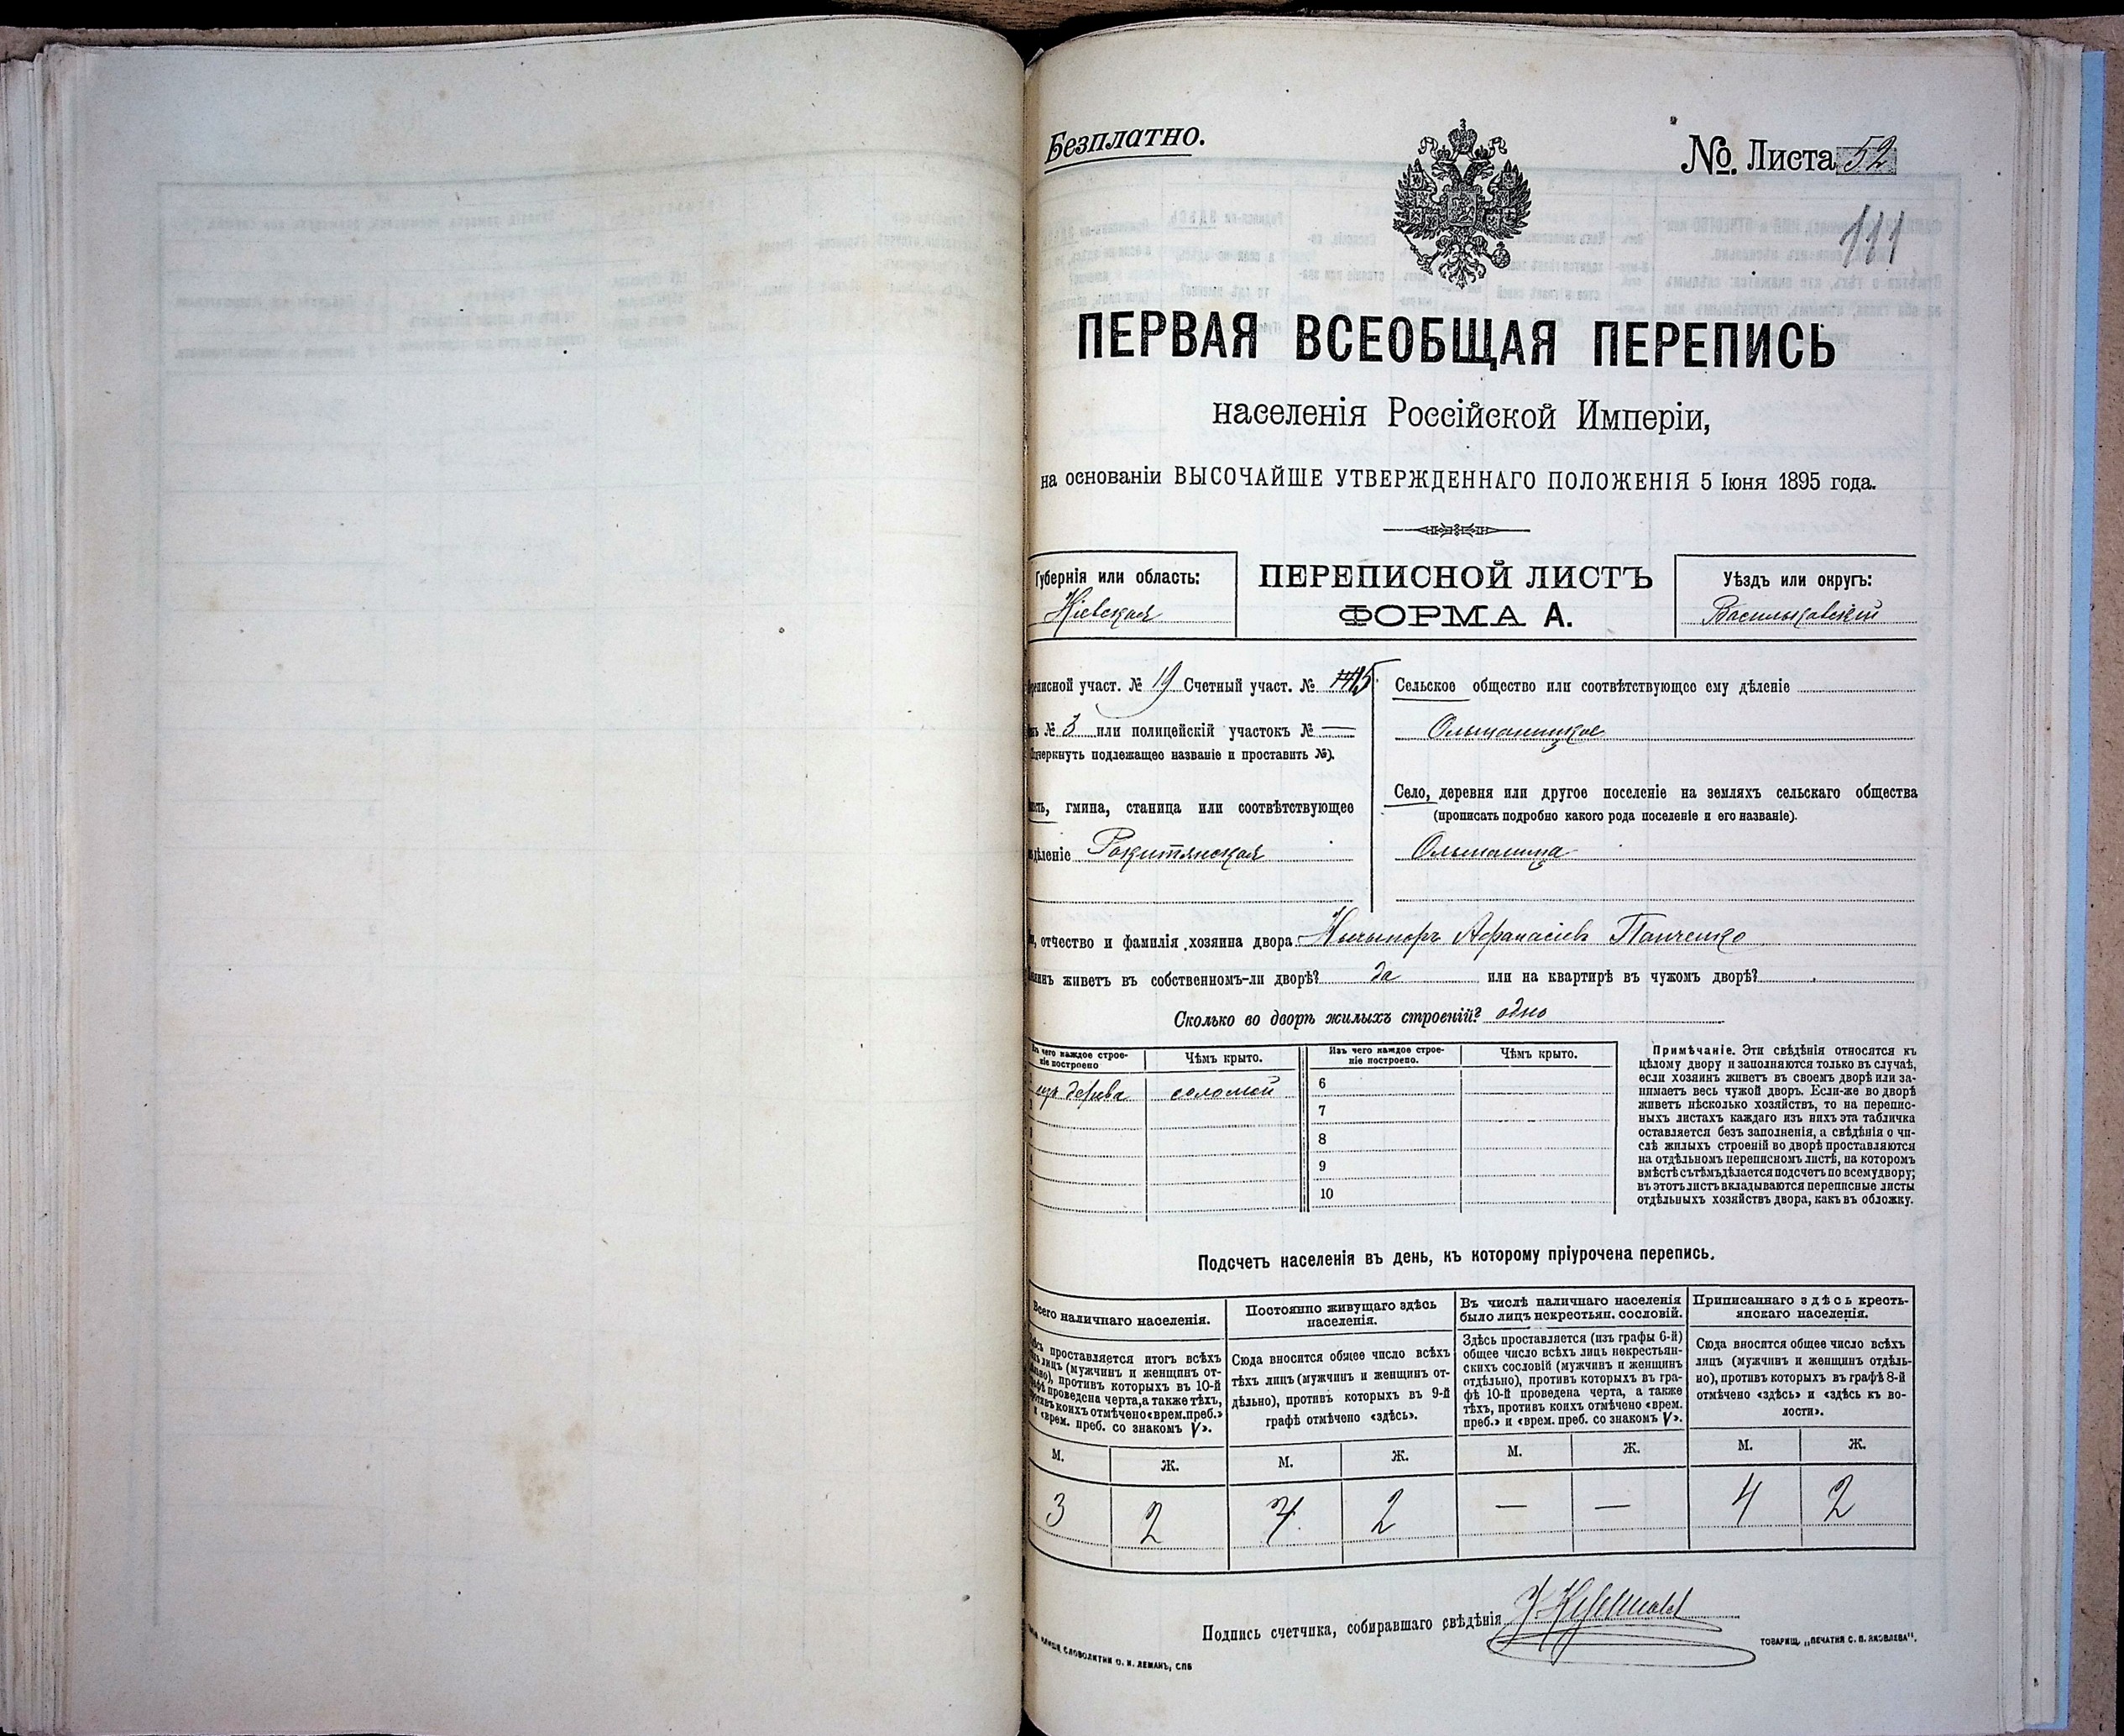 Безплатно.
№. Листа 52
111
ПЕРВАЯ ВСЕОБЩАЯ ПЕРЕПИСЬ
населенія Россійской Имперіи,
на основаніи ВЫСОЧАЙШЕ УТВЕРЖДЕННАГО ПОЛОЖЕНІЯ 5 Іюня 1895 года.
Губернія или область:
Кіевская
ПЕРЕПИСНОЙ ЛИСТЪ
ФОРМА А.
Уѣздъ или округъ:
Васильковскій
реписной участ. № 19 Счетный участ. № 15
№ 3 или полицейскій участокъ № —
черкнуть подлежащее названіе и проставить №).
ость, гмина, станица или соотвѣтствующее
дѣленіе Ракитянская
Сельское общество или соотвѣтствующее ему дѣленіе
Ольшаницкое
Село, деревня или другое поселеніе на земляхъ сельскаго общества
(прописать подробно какого рода поселеніе и его названіе).
Ольшаница
отчество и фамилія хозяина двора Ничипоръ Афанасіевъ Панченко
инъ живетъ въ собственномъ-ли дворѣ? да или на квартирѣ въ чужомъ дворѣ?
Сколько во дворѣ жилыхъ строеній? одно
Изъ чего каждое строе-
ніе построено
Чѣмъ крыто.
Изъ чего каждое строе-
ніе построено.
Чѣмъ крыто.
изъ дерева соломой
6
7
8
9
10
Примѣчаніе. Эти свѣдѣнія относятся къ
цѣлому двору и заполняются только въ случаѣ,
если хозяинъ живетъ въ своемъ дворѣ или за-
нимаетъ весь чужой дворъ. Если-же во дворѣ
живетъ нѣсколько хозяйствъ, то на перепис-
ныхъ листахъ каждаго изъ нихъ эта табличка
оставляется безъ заполненія, а свѣдѣнія о чи-
слѣ жилыхъ строеній во дворѣ проставляются
на отдѣльномъ переписномъ листѣ, на которомъ
вмѣстѣ съ тѣмъ дѣлается подсчетъ по всему двору;
въ этотъ листъ вкладываются переписные листы
отдѣльныхъ хозяйствъ двора, какъ въ обложку.
Подсчетъ населенія въ день, къ которому пріурочена перепись.
Всего наличнаго населенія.
проставляется итогъ всѣхъ
лицъ (мужчинъ и женщинъ от-
но), противъ которыхъ въ 10-й
графѣ проведена черта, а также тѣхъ,
противъ коихъ отмѣчено «врем. преб.»
и «врем. преб. со знакомъ V».
Постоянно живущаго здѣсь
населенія.
Сюда вносится общее число всѣхъ
тѣхъ лицъ (мужчинъ и женщинъ от-
дѣльно), противъ которыхъ въ 9-й
графѣ отмѣчено «здѣсь».
Въ числѣ наличнаго населенія
было лицъ некрестьян. сословій.
Здѣсь проставляется (изъ графы 6-й)
общее число всѣхъ лицъ некрестьян-
скихъ сословій (мужчинъ и женщинъ
отдѣльно), противъ которыхъ въ гра-
фѣ 10-й проведена черта, а также
тѣхъ, противъ коихъ отмѣчено «врем.
преб.» и «врем. преб. со знакомъ V».
Приписаннаго здѣсь кресть-
янскаго населенія.
Сюда вносится общее число всѣхъ
лицъ (мужчинъ и женщинъ отдѣль-
но), противъ которыхъ въ графѣ 8-й
отмѣчено «здѣсь» и «здѣсь къ во-
лости».
М. Ж. М. Ж. М. Ж. М. Ж.
3 2 4 2 — — 4 2
Подпись счетчика, собиравшаго свѣдѣнія
СЛОВОЛИТНИ О. И. ЛЕМАНЪ, СПБ
ТОВАРИЩ. „ПЕЧАТНЯ С. П. ЯКОВЛЕВА".